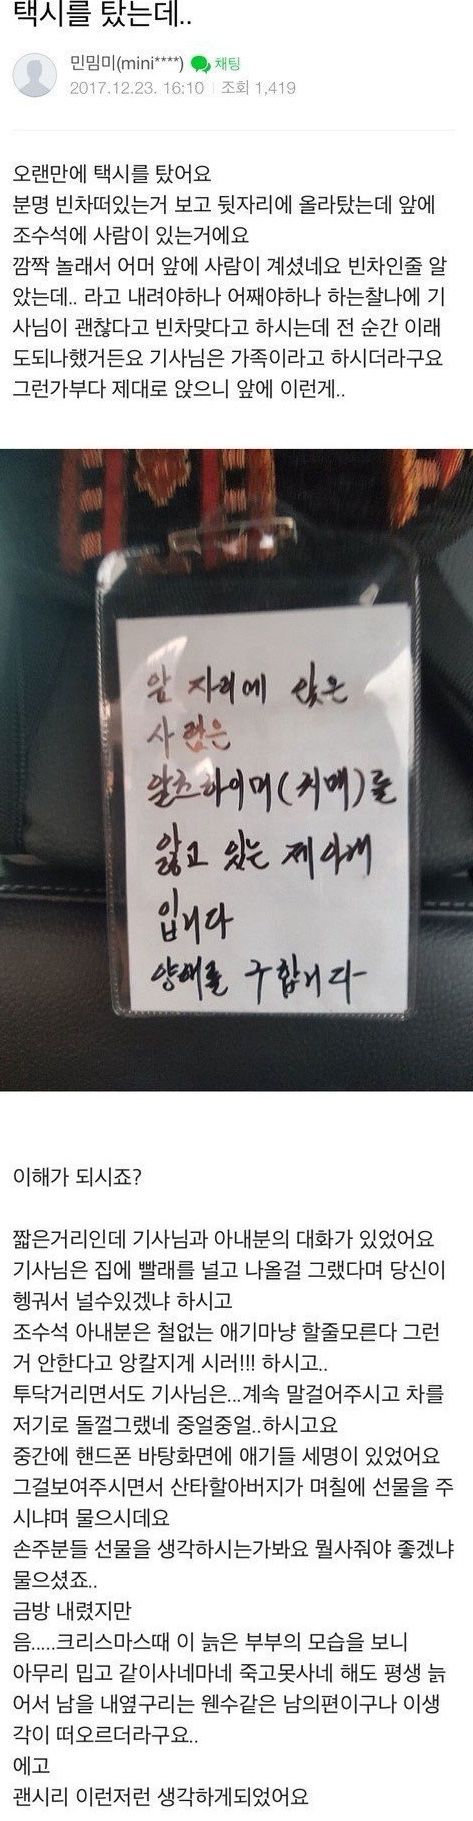 택시를 탔는데..
민밈미(mini****) 채팅
2017.12.23. 16:10 조회 1,419
오랜만에 택시를 탔어요
분명 빈차떠있는거 보고 뒷자리에 올라탔는데 앞에
조수석에 사람이 있는거에요
깜짝 놀래서 어머 앞에 사람이 계셨네요 빈차인줄 알
았는데.. 라고 내려야하나 어째야하나 하는찰나에 기
사님이 괜찮다고 빈차맞다고 하시는데 전 순간 이래
도되나했거든요 기사님은 가족이라고 하시더라구요
그런가부다 제대로 앉으니 앞에 이런게..
앞 자리에 앉은
사람은
알츠하이머(치매)를
앓고 있는 제 아내
입니다
양해를 구합니다
이해가 되시죠?
짧은거리인데 기사님과 아내분의 대화가 있었어요
기사님은 집에 빨래를 널고 나올걸 그랬다며 당신이
헹궈서 널수있겠냐 하시고
조수석 아내분은 철없는 애기마냥 할줄모른다 그런
거 안한다고 앙칼지게 시러!!! 하시고..
투닥거리면서도 기사님은...계속 말걸어주시고 차를
저기로 돌껄그랬네 중얼중얼..하시고요
중간에 핸드폰 바탕화면에 애기들 세명이 있었어요
그걸보여주시면서 산타할아버지가 며칠에 선물을 주
시냐며 물으시데요
손주분들 선물을 생각하시는가봐요 뭘사줘야 좋겠냐
물으셨죠..
금방 내렸지만
음.....크리스마스때 이 늙은 부부의 모습을 보니
아무리 밉고 같이사네마네 죽고못사네 해도 평생 늙
어서 남을 내옆구리는 웬수같은 남의편이구나 이생
각이 떠오르더라구요..
에고
괜시리 이런저런 생각하게되었어요